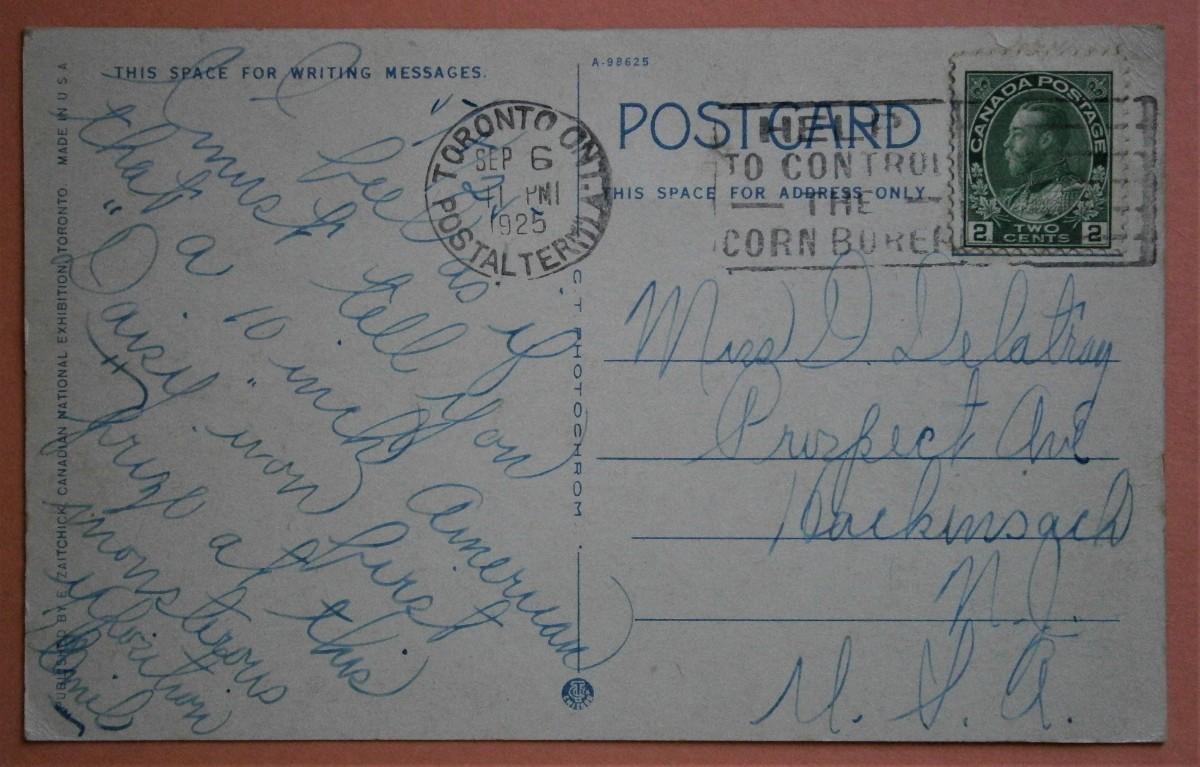 THIS SPACE FOR WRITING MESSAGES.
A-98625
POST CARD
THIS SPACE FOR ADDRESS ONLY.
TORONTO ONT.
SEP 6
PM
1925
POSTAL TERM'L "A"
HELP
TO CONTROL
THE
CORN BORER
CANADA POSTAGE
2 TWO CENTS 2
I must tell you
that a 10 inch American
"Daisy" won first
prize at this
monsterous
Emil
Prospect Ave
Hackinsack
N.J.
U. S. A.
PUBLISHED BY E. ZAITCHICK, CANADIAN NATIONAL EXHIBITION, TORONTO MADE IN U S A
C. T. PHOTOCHROM